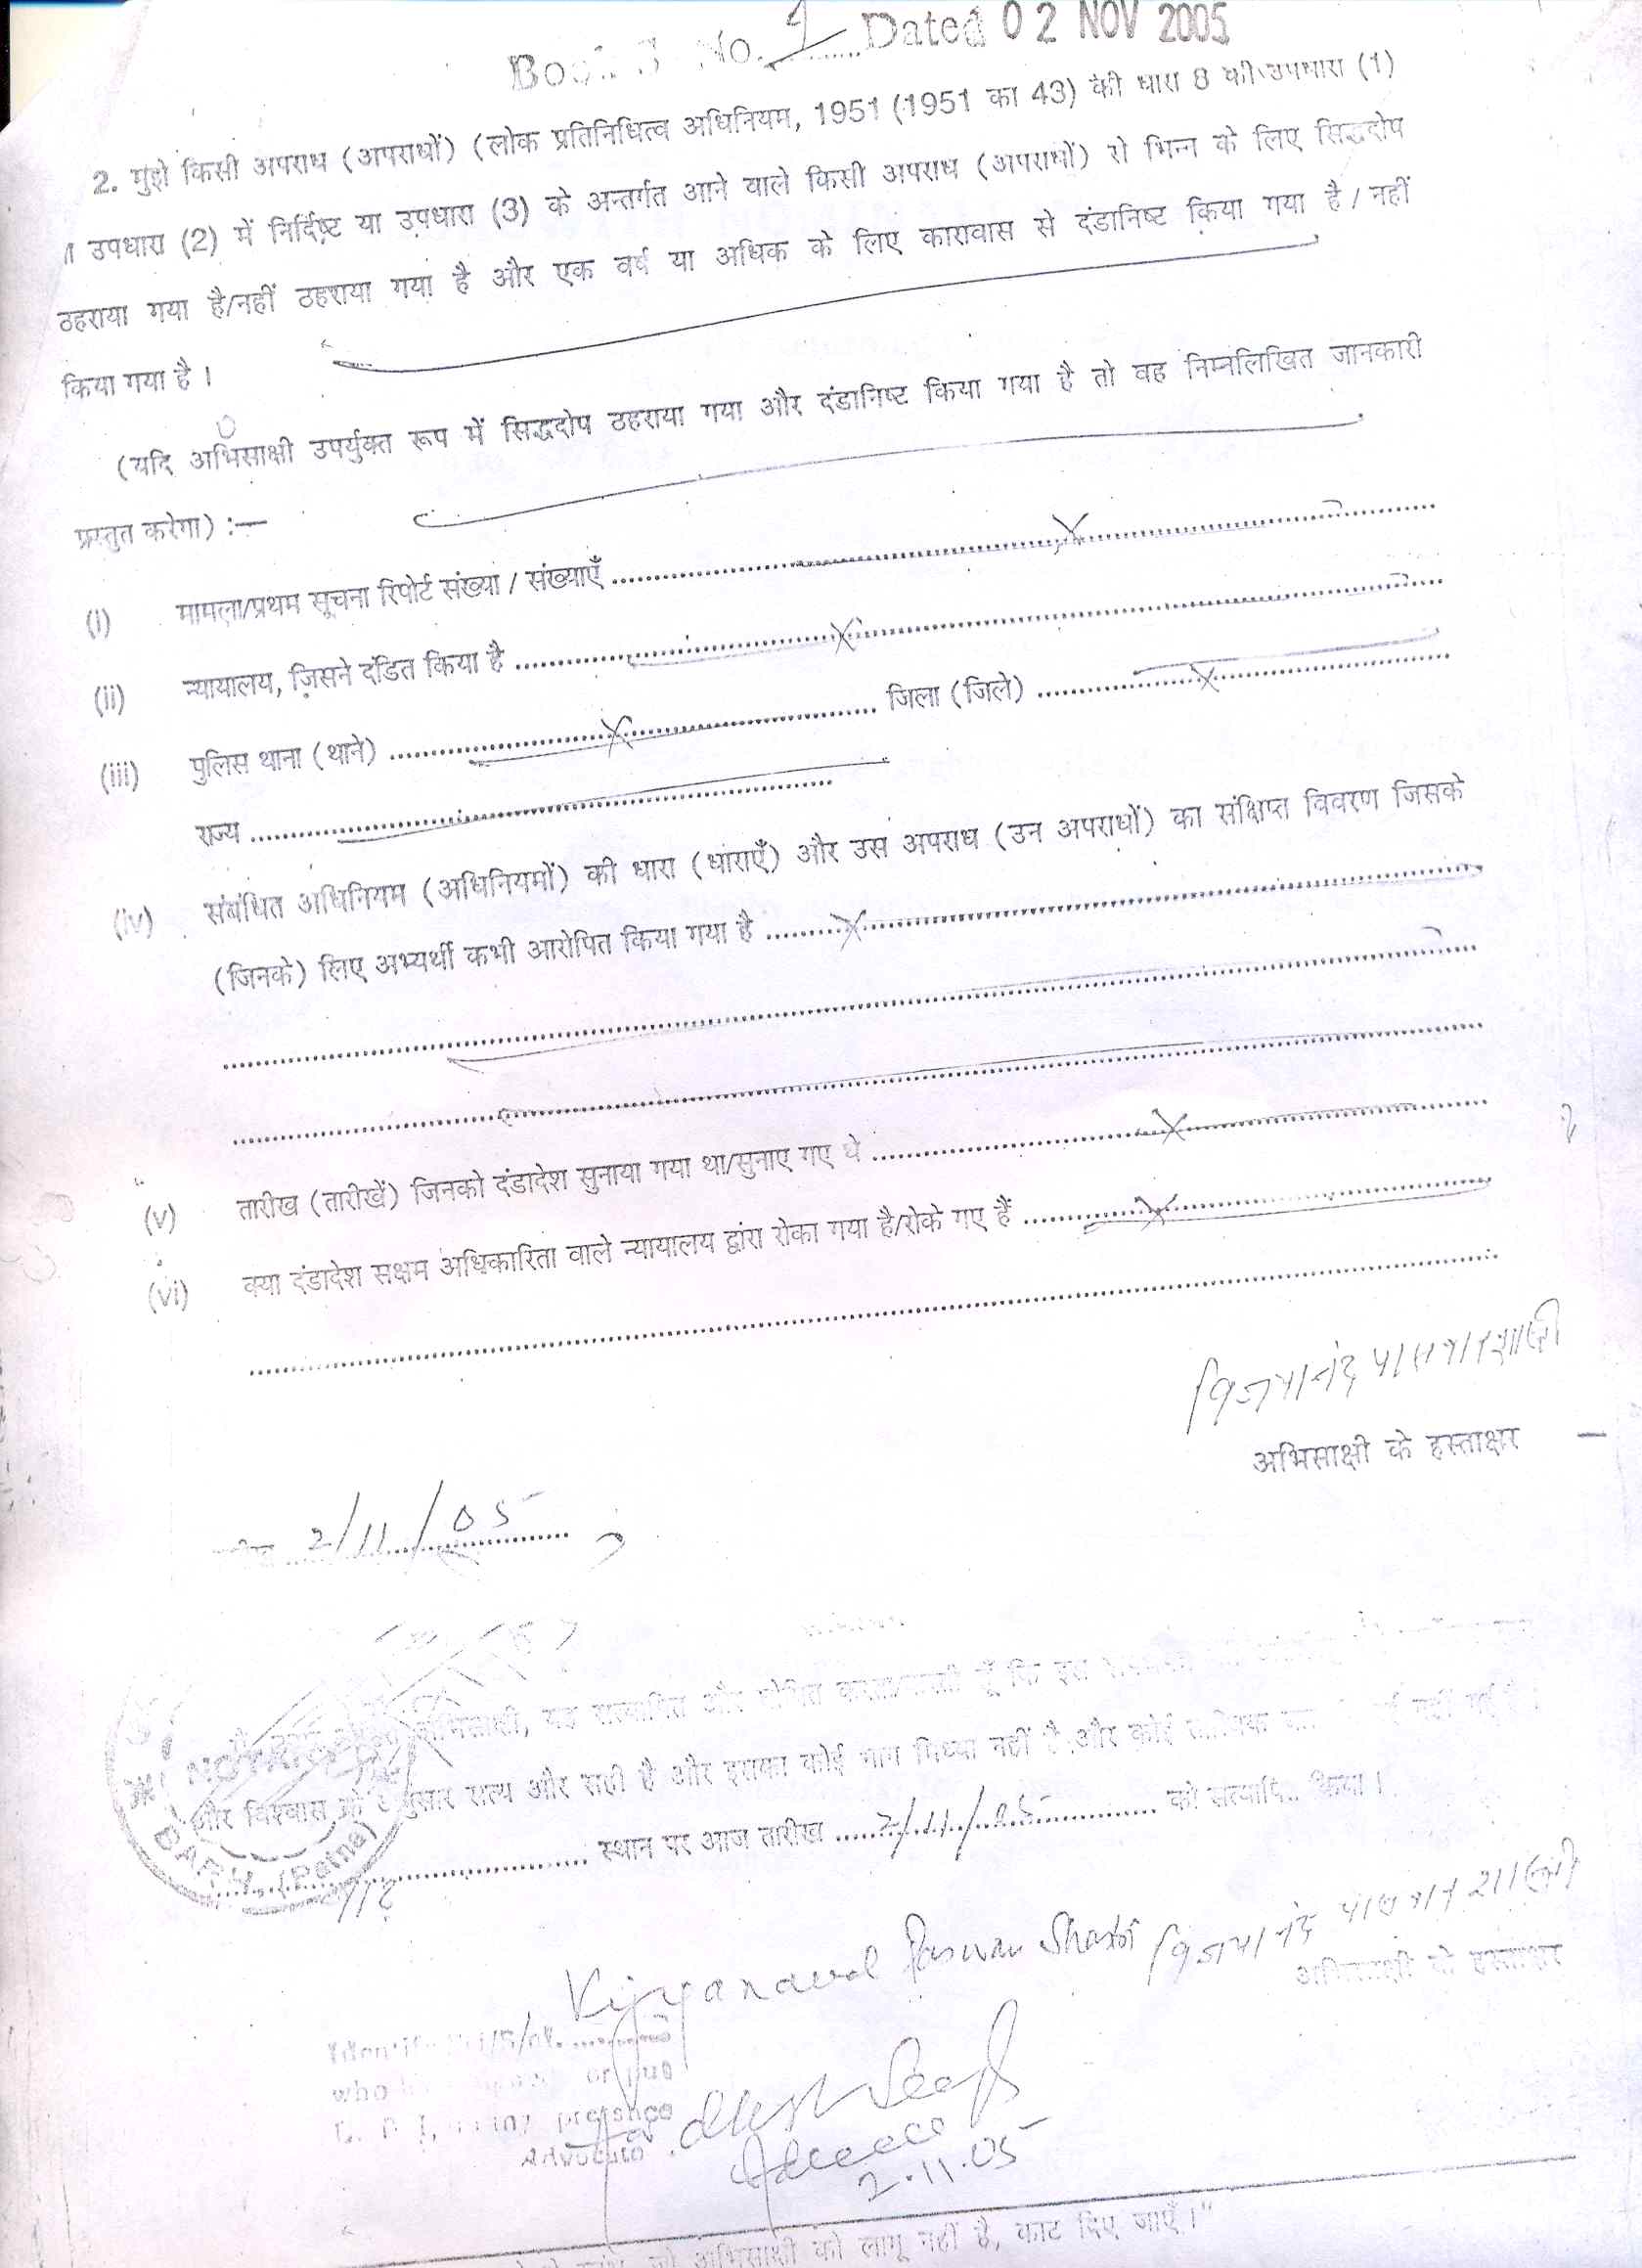 No. 1 Dated 02 NOV 2005
2. मुझे किसी अपराध (अपराधों) (लोक प्रतिनिधित्व अधिनियम, 1951 (1951 का 43) की धारा 8 की उपधारा (1)
उपधारा (2) में निर्दिष्ट या उपधारा (3) के अन्तर्गत आने वाले किसी अपराध (अपराधों) से भिन्न के लिए सिद्धदोष
ठहराया गया है/नहीं ठहराया गया है और एक वर्ष या अधिक के लिए कारावास से दंडानिष्ट किया गया है / नहीं
किया गया है ।
(यदि अभिसाक्षी उपर्युक्त रूप में सिद्धदोष ठहराया गया और दंडानिष्ट किया गया है तो वह निम्नलिखित जानकारी
प्रस्तुत करेगा) :—
(i) मामला/प्रथम सूचना रिपोर्ट संख्या / संख्याएँ .......... X ..........
(ii) न्यायालय, जिसने दंडित किया है .......... X ..........
(iii) पुलिस थाना (थाने) .......... X .......... जिला (जिले) .......... X ..........
राज्य ..........
(iv) संबंधित अधिनियम (अधिनियमों) की धारा (धाराएँ) और उस अपराध (उन अपराधों) का संक्षिप्त विवरण जिसके
(जिनके) लिए अभ्यर्थी कभी आरोपित किया गया है .......... X ..........
(v) तारीख (तारीखें) जिनको दंडादेश सुनाया गया था/सुनाए गए थे .......... X ..........
(vi) क्या दंडादेश सक्षम अधिकारिता वाले न्यायालय द्वारा रोका गया है/रोके गए हैं .......... X ..........
विजयानंद पासवान शास्त्री
अभिसाक्षी के हस्ताक्षर —
2/11/05
अभिसाक्षी, यह सत्यापित और घोषित करता/करती हूँ कि इस
और विश्वास के अनुसार सत्य और सही है और इसका कोई भाग मिथ्या नहीं है और कोई तात्विक
.......... स्थान पर आज तारीख .... 2/11/05 .......... को सत्यापित किया ।
NOTARY
BARH, (Patna)
Vijyanand Paswan Shastri विजयानंद पासवान शास्त्री
अभिसाक्षी के हस्ताक्षर
who
presence
Advocate
Advocate
2.11.05
अभिसाक्षी को लागू नहीं है, काट दिए जाएँ ।"